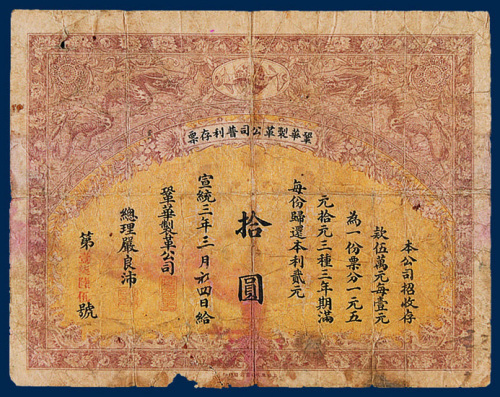 鞏華製革公司普利存票
本公司招收存
款伍萬元每壹元
為一份票分一元五
元拾元三種三年期滿
每份歸還本利貳元
拾圓
宣統三年三月初四日給
鞏華製革公司
總理嚴良沛
第號